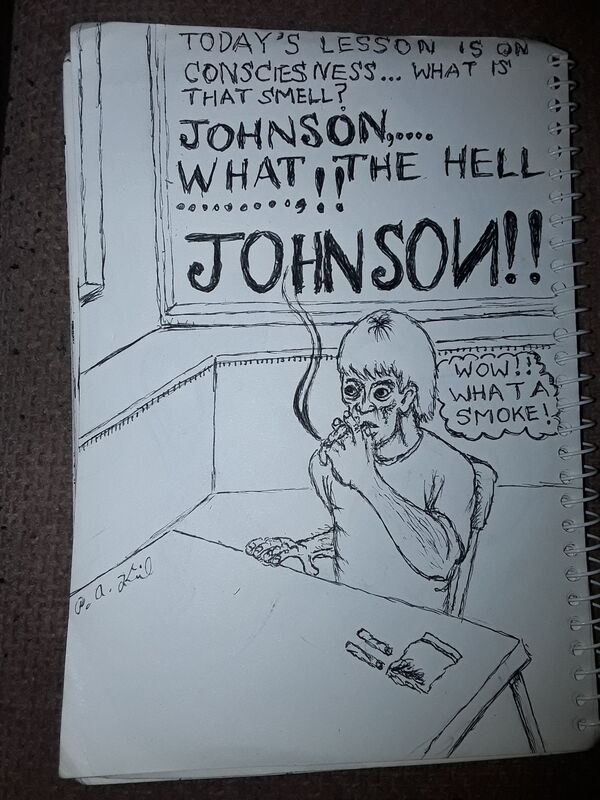 TODAY'S LESSON IS ON
CONSCIESNESS... WHAT IS
THAT SMELL?
JOHNSON,....
WHAT THE HELL
..........,!!
JOHNSON!!
WOW!!
WHAT A
SMOKE!
P. A.